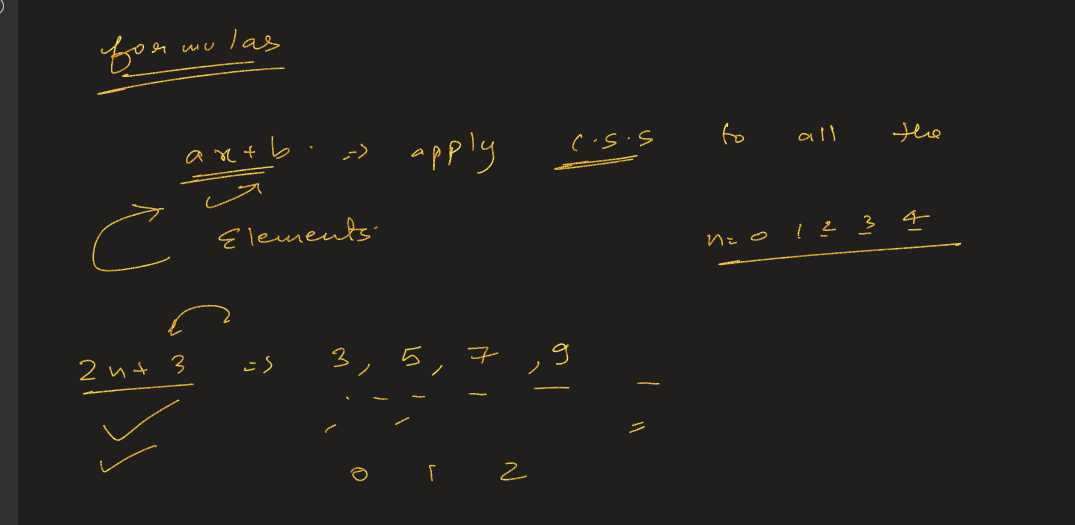 formulas
an+b. => apply C.S.S to all the
Elements.
n=0 1 2 3 4
2n+3 => 3, 5, 7, 9
0 1 2